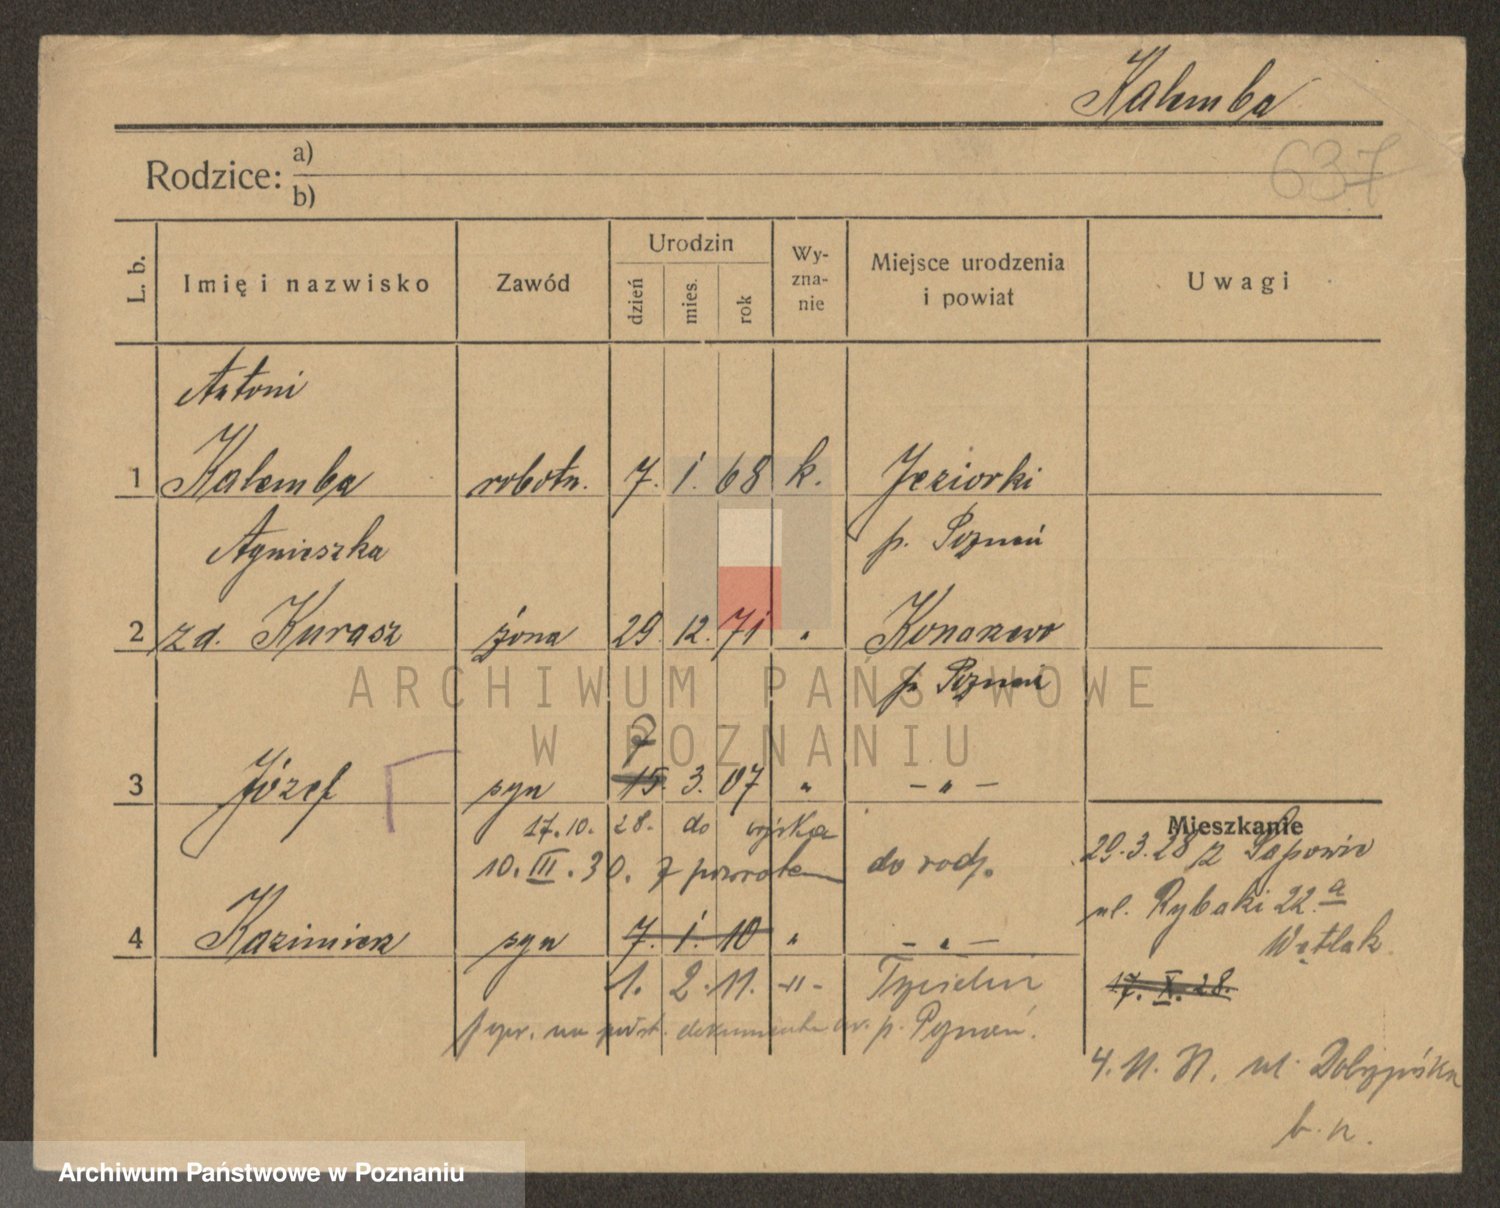 Kalemba
637
Rodzice: a)
b)
L. b. Imię i nazwisko Zawód Urodzin dzień mies. rok Wy-zna-nie Miejsce urodzenia i powiat Uwagi
Antoni
1 Kalemba robotn. 7. 1. 68 k. Jeziorki
Agnieszka p. Poznań
2 zd. Kurasz żona 29. 12. 71 " Konarzewo
p. Poznań
7
3 Józef syn 15. 3. 07 " - " -
Mieszkanie
17. 10. 28. do wojska
29.3.28 z
10. III. 30. z powrotem do rodz.
ul. Rybaki 22 a
4 Kazimierz syn 7. 1. 10 " - " -
Wętlak
1. 2. 11. -"-
17. X. 28.
na podst. dokumentu p. Poznań.
4. 11. 31. ul.
b. n.
ARCHIWUM PAŃSTWOWE
W POZNANIU
Archiwum Państwowe w Poznaniu